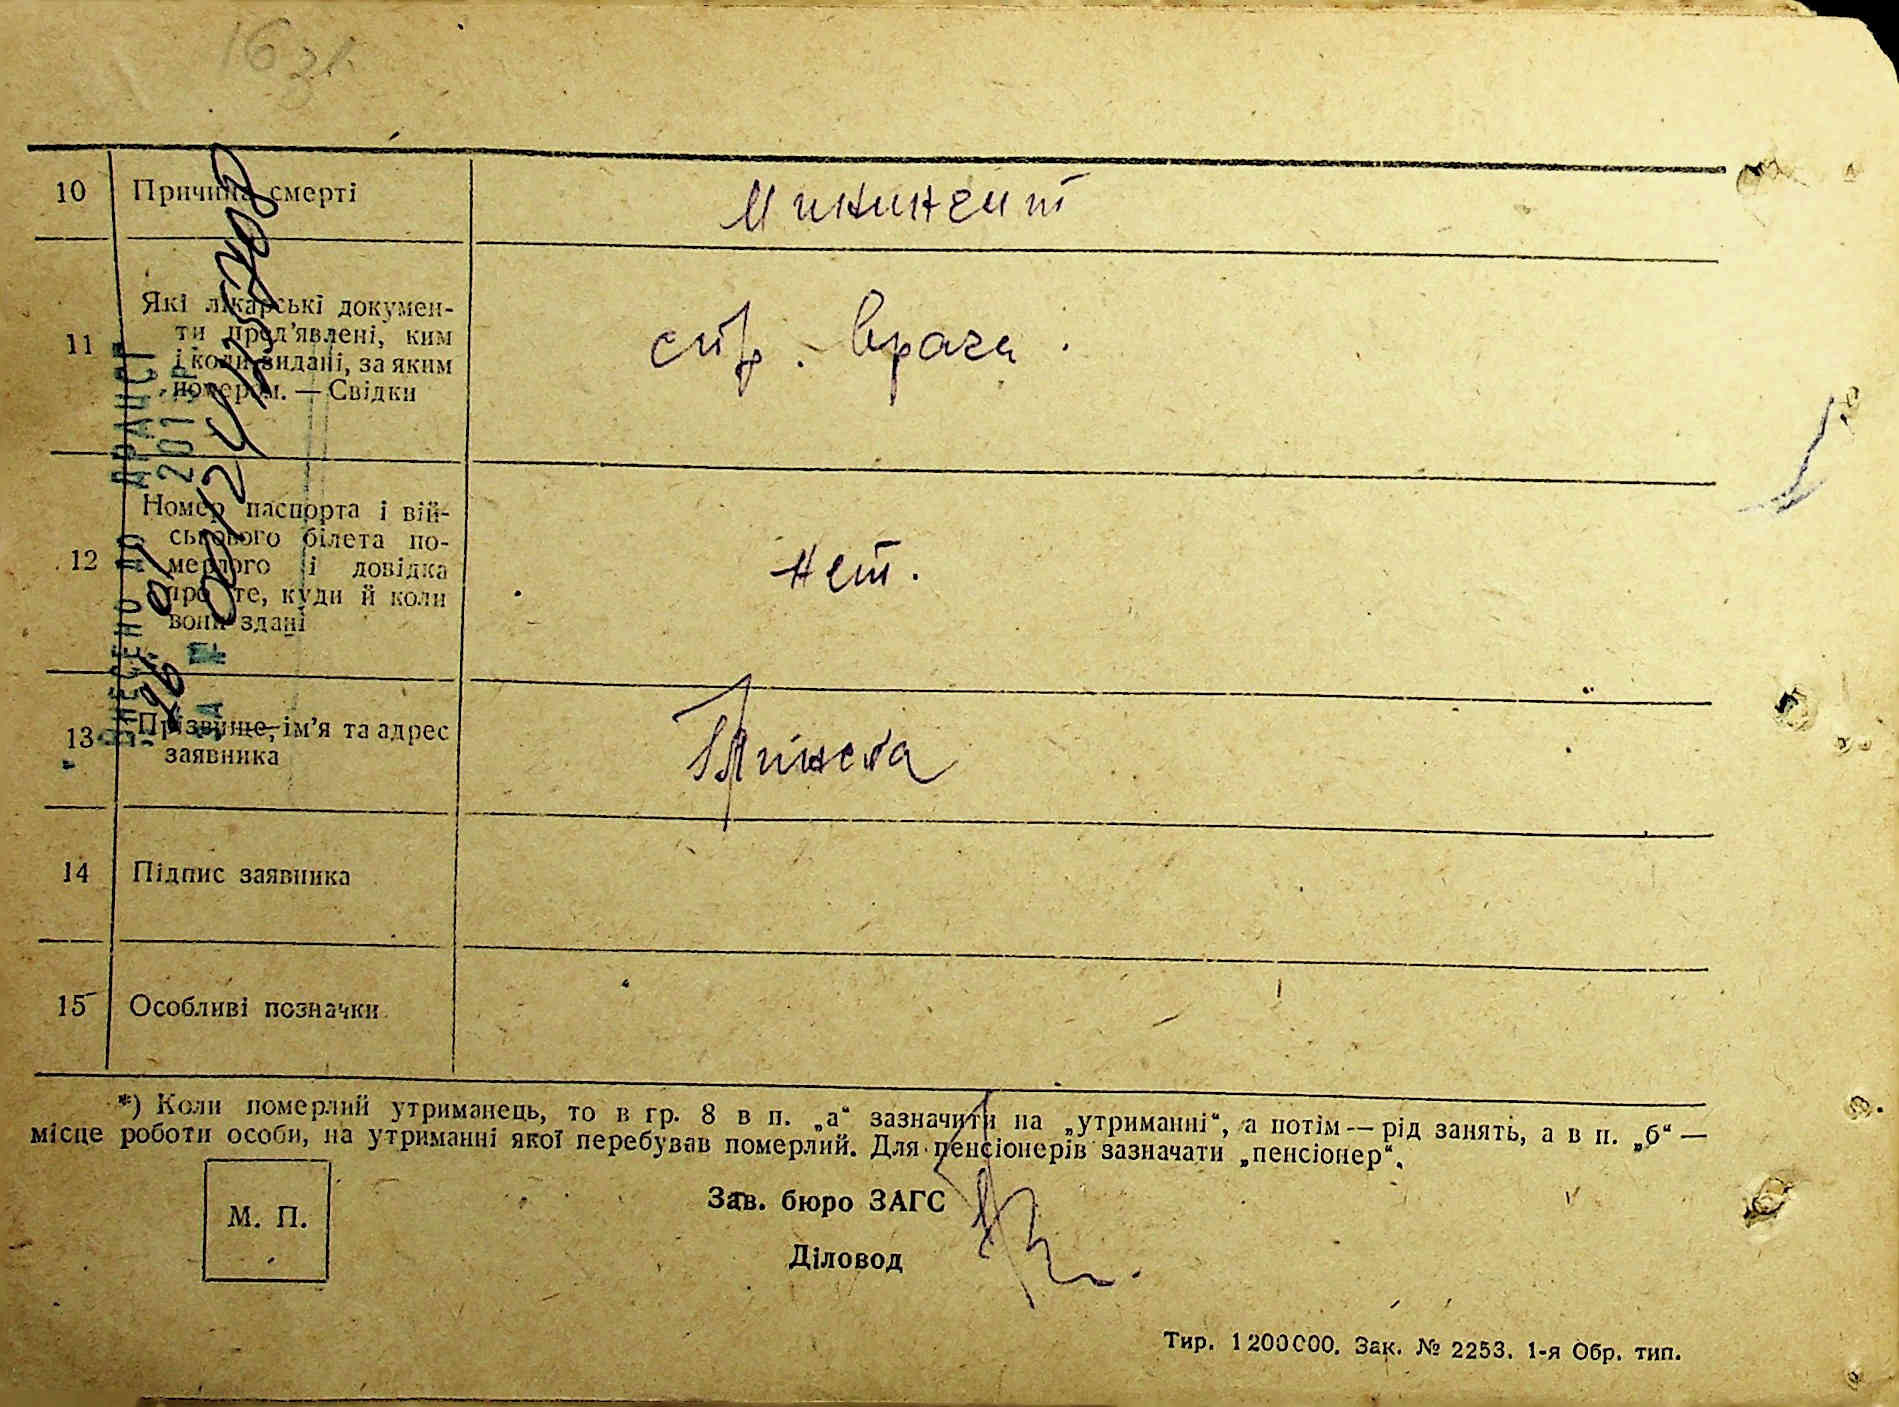 16 зв.
10 Причина смерті Минингит
11 Які лікарські докумен-
ти пред'явлені, ким
і коли видані, за яким
номером. — Свідки
спр. врача.
12 Номер паспорта і вій-
ськового білета по-
мерлого і довідка
про те, куди й коли
вони здані
нет.
13 Прізвище, ім'я та адрес
заявника
14 Підпис заявника
15 Особливі позначки
ВНЕСЕНО ДО ДРАЦСГ
26 01 201 Р.
ЗА №
*) Коли померлий утриманець, то в гр. 8 в п. „а“ зазначити на „утриманні“, а потім — рід занять, а в п. „б“ —
місце роботи особи, на утриманні якої перебував померлий. Для пенсіонерів зазначати „пенсіонер“.
М. П.
Зав. бюро ЗАГС
Діловод
Тир. 1 200 000. Зак. № 2253. 1-я Обр. тип.